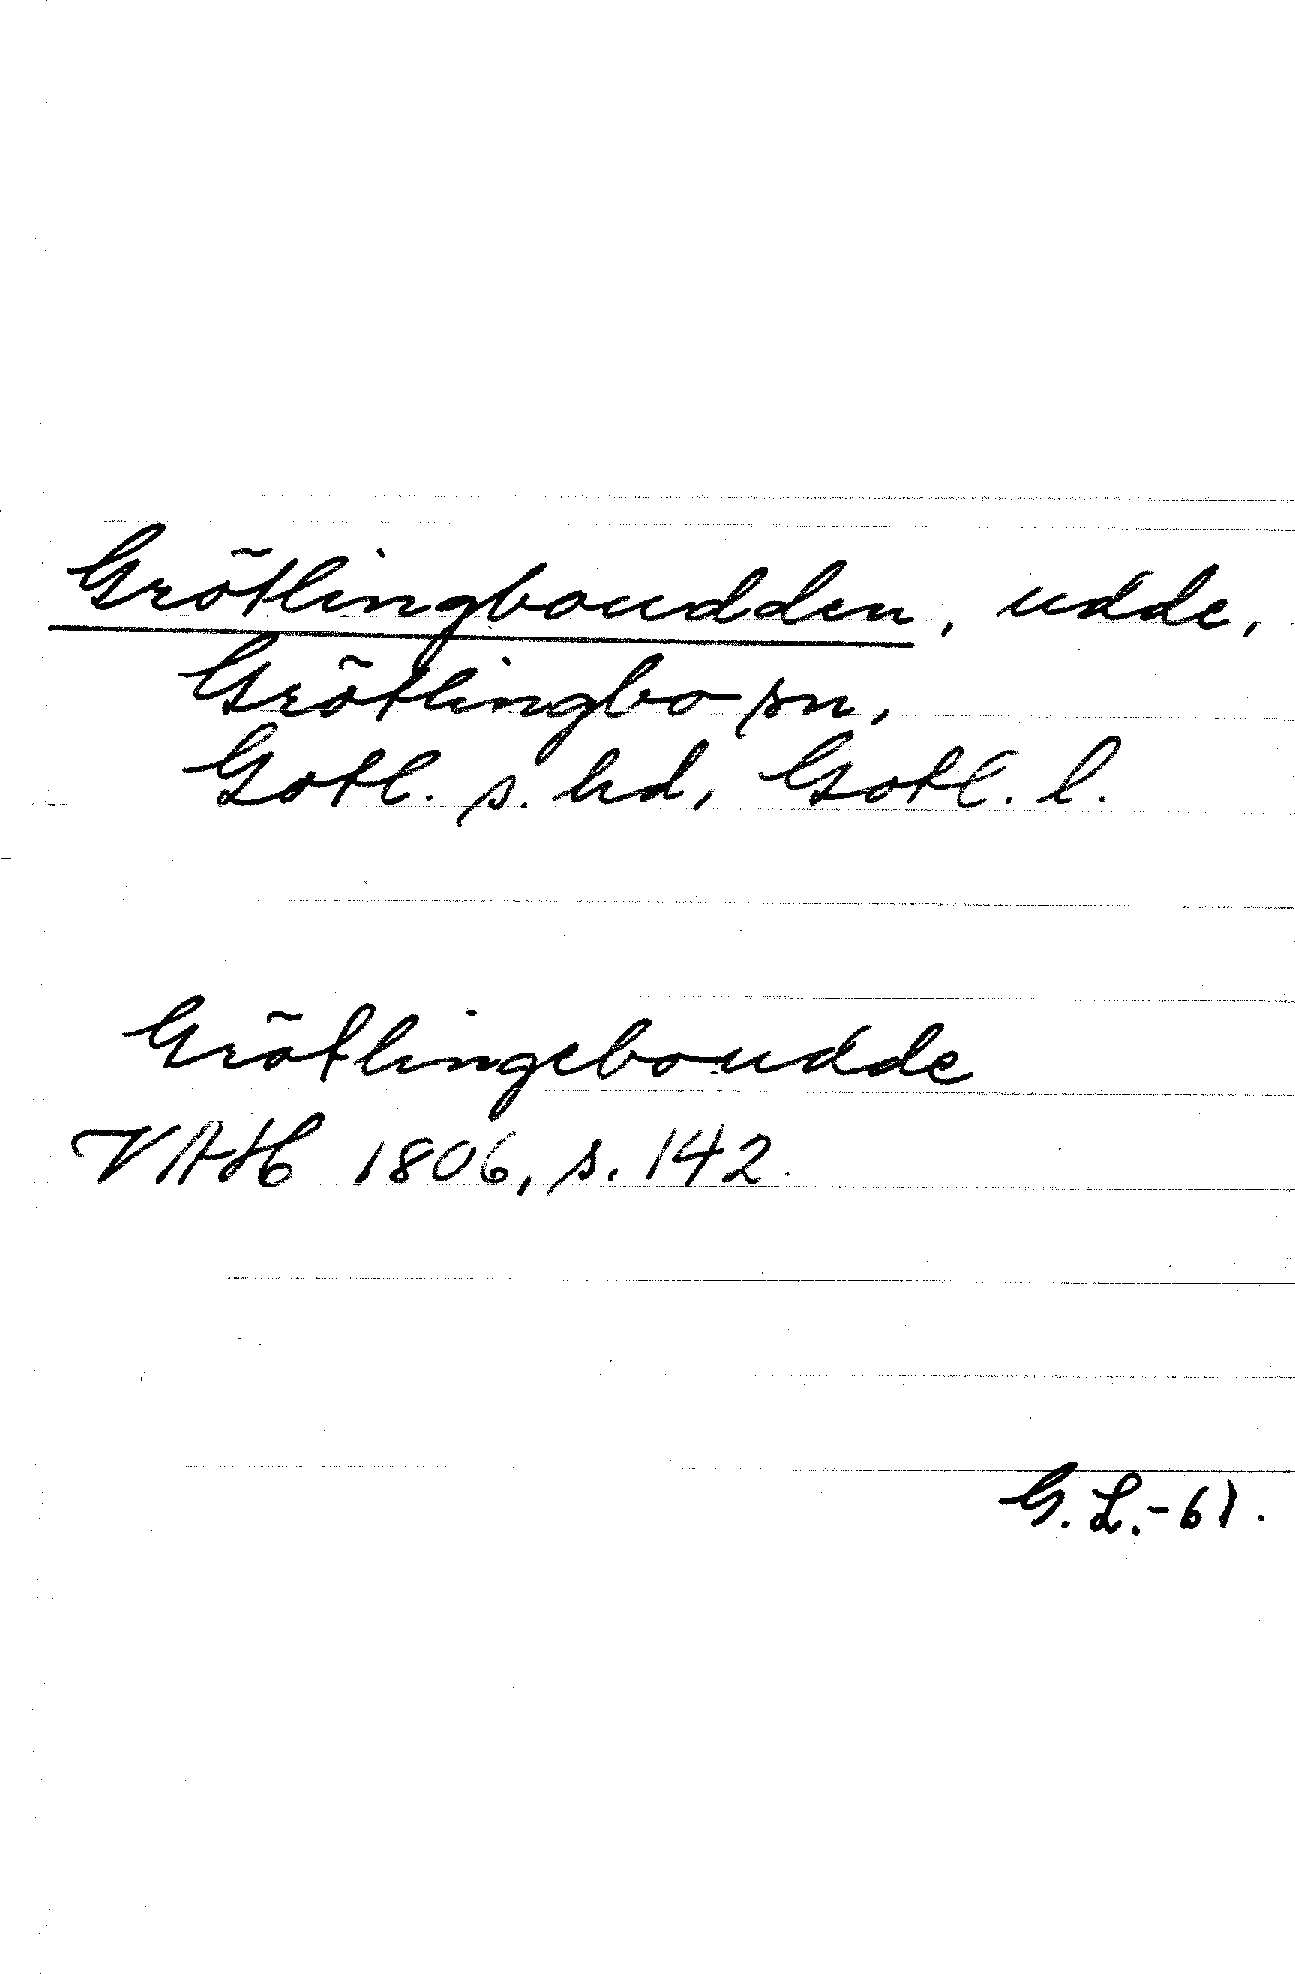 Grötlingboudden, udde,
Grötlingbo sn,
Gotl. s. hd, Gotl. l.
Grötlingeboudde
VAH 1806, s. 142.
G. L. - 61.